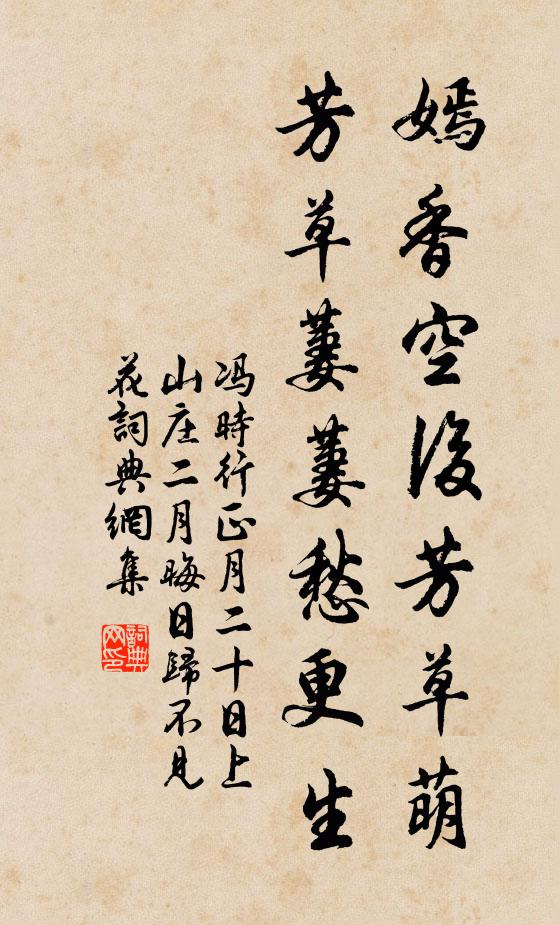 嫣香空後芳草萌
芳草萋萋愁更生
冯時行正月二十日上
山庄二月晦日歸不見
花詞典網集
詞典网印